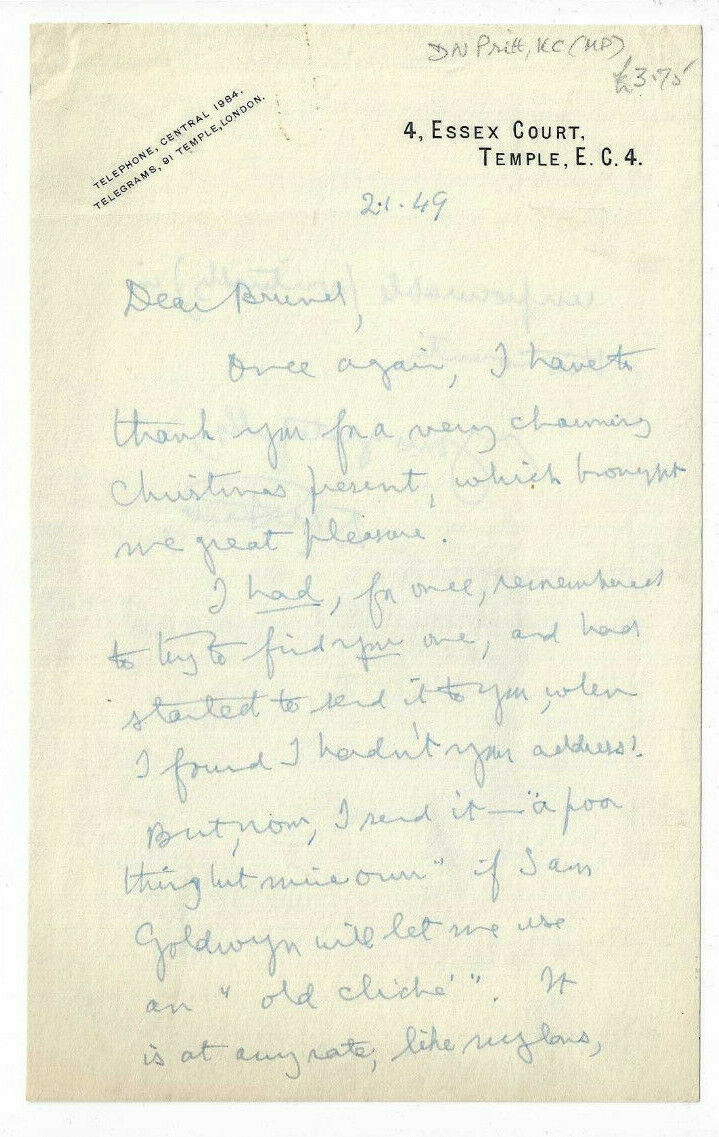 DN Pritt, KC (MP)
£3.75
TELEPHONE, CENTRAL 1984.
TELEGRAMS, 91 TEMPLE, LONDON.
4, ESSEX COURT,
TEMPLE, E.C.4.
2.1.49
Dear Brunel,
Once again, I have to
thank you for a very charming
Christmas present, which brought
me great pleasure.
I had, for once, remembered
to try to find you one, and had
started to send it to you, when
I found I hadn't your address!
But, now, I send it — "a poor
thing but mine own" if Sam
Goldwyn will let me use
an "old cliché". It
is at any rate, like nylons,
unprocurable